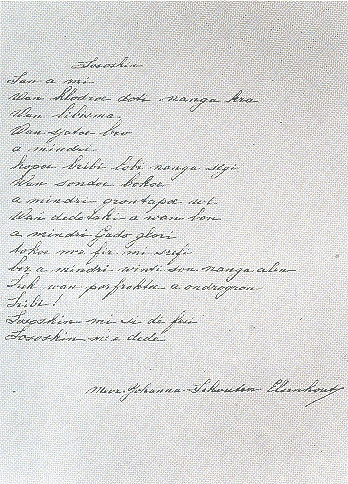 Sososkin
San a mi
Wan klodroe doti nanga kra
Wan libisma
Wan sjatoe bro
a mindri
hopoe bribi lobi nanga segi
Wan sondoe bokoe
a mindri grontapoe
Wan dede taki a wan bon
a mindri Gado glori
tokoe me fir mi srefi
bra a mindri winti son nanga alen
Leki wan porfroktu a ondrogron
Libi!
Sososkin mi si de fri
Sososkin m'e dede
Mevr. Johanna Schouten Elsenhout